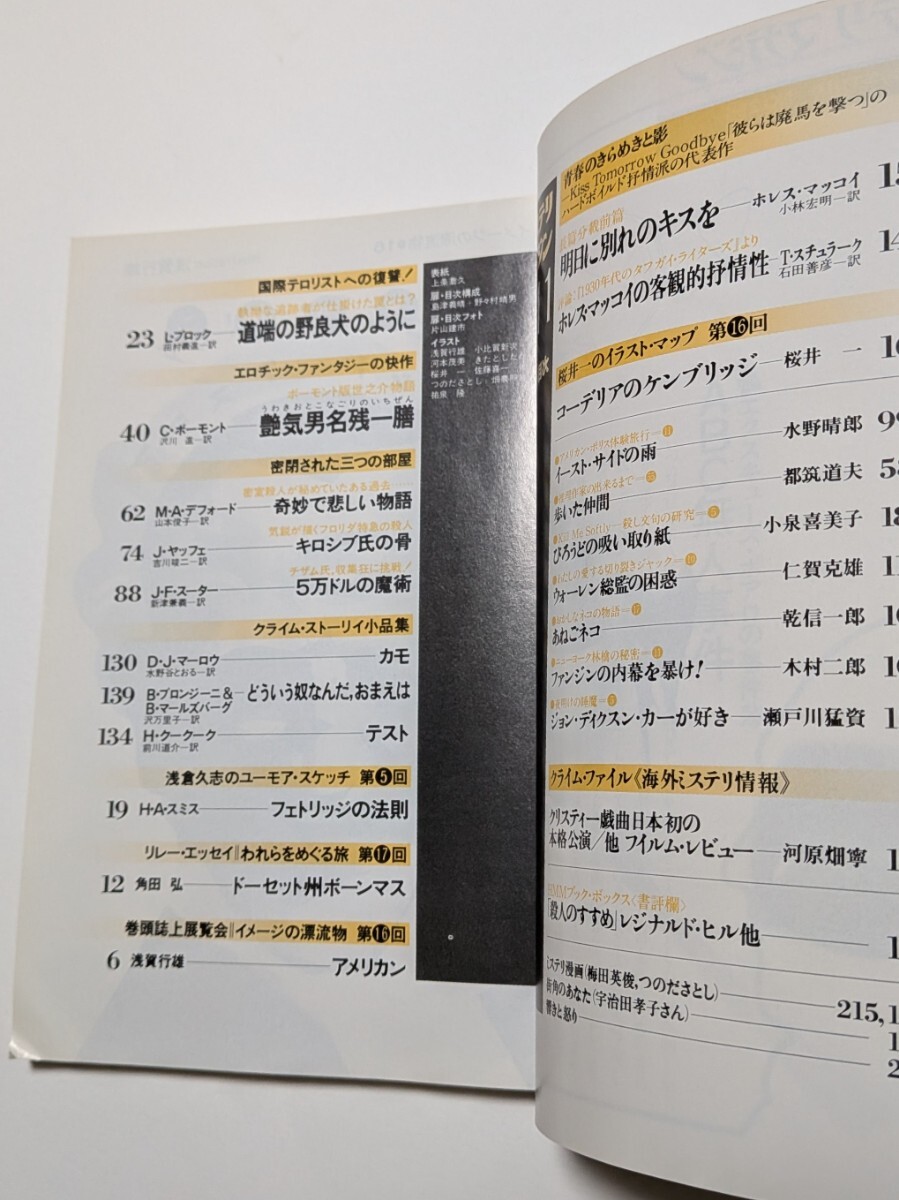 国際テロリストへの復讐!
執拗な追跡者が仕掛けた罠とは?
23 L・ブロック 田村義進—訳 道端の野良犬のように
エロチック・ファンタジーの快作
ボーモント版世之介物語
うわきおとこなごりのいちぜん
40 C・ボーモント 沢川 進—訳 艶気男名残一膳
密閉された三つの部屋
密室殺人が秘めていたある過去……
62 M・A・デフォード 山本俊子—訳 奇妙で悲しい物語
気鋭が描くフロリダ特急の殺人
74 J・ヤッフェ 吉川竣二—訳 キロシブ氏の骨
チザム氏、収集狂に挑戦!
88 J・F・スーター 新津兼義—訳 5万ドルの魔術
クライム・ストーリイ小品集
130 D・J・マーロウ 水野谷とおる—訳 カモ
139 B・プロンジーニ& B・マールズバーグ 沢万里子—訳 どういう奴なんだ,おまえは
134 H・クークーク 前川道介—訳 テスト
浅倉久志のユーモア・スケッチ 第5回
19 H・A・スミス フェトリッジの法則
リレー・エッセイ‖われらをめぐる旅 第17回
12 角田 弘 ドーセット州ボーンマス
巻頭誌上展覧会‖イメージの漂流物 第16回
6 浅賀行雄 アメリカン
表紙
上条喬久
扉・目次構成
島津義晴・野々村晴男
扉・目次フォト
片山建市
イラスト
浅賀行雄 小比賀新次
河本茂美 きたとした
桜井 一 佐藤喜一
つのださとし・畑農
祐泉 隆
青春のきらめきと影
—Kiss Tomorrow Goodbye「彼らは廃馬を撃つ」の
ハードボイルド抒情派の代表作
長篇分載前篇
明日に別れのキスを—ホレス・マッコイ 小林宏明—訳
評論:『1930年代のタフガイ・ライターズ』より
ホレス・マッコイの客観的抒情性—T・スチュラーク 石田善彦—訳
桜井一のイラスト・マップ 第16回
コーデリアのケンブリッジ—桜井 一
●アメリカン・ポリス体験旅行—11
イースト・サイドの雨 水野晴郎 99
●推理作家の出来るまで—55
歩いた仲間 都筑道夫
●Kill Me Softly—殺し文句の研究—5
びろうどの吸い取り紙 小泉喜美子
●わたしの愛する切り裂きジャック—10
ウォーレン総監の困惑 仁賀克雄
●おかしなネコの物語—17
あねごネコ 乾信一郎
●ニューヨーク林檎の秘密—11
ファンジンの内幕を暴け! 木村二郎
●夜明けの睡魔—5
ジョン・ディクスン・カーが好き—瀬戸川猛資
クライム・ファイル《海外ミステリ情報》
クリスティー戯曲日本初の
本格公演/他 フイルム・レビュー—河原畑寧
HMMブック・ボックス〈書評欄〉
「殺人のすすめ」レジナルド・ヒル他
ミステリ漫画(梅田英俊,つのださとし) 215,
街角のあなた(宇治田孝子さん)
響きと怒り